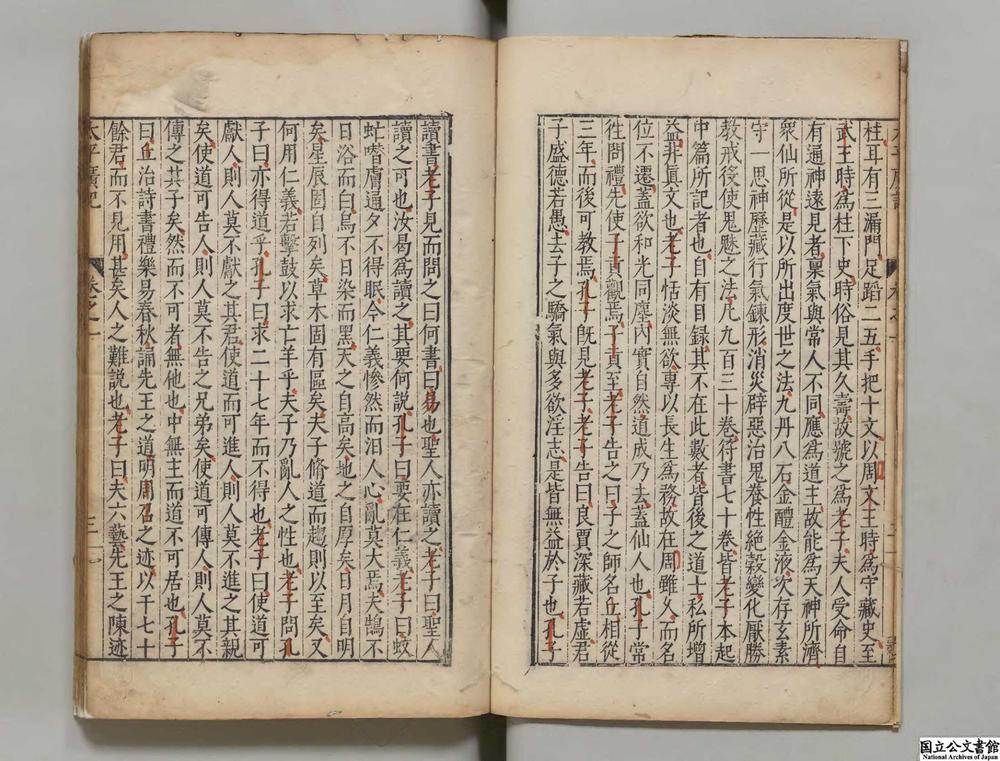 柱耳有三漏門足蹈二五手把十文以周文王時爲守藏史至
武王時爲柱下史時俗見其久壽故號之爲老子夫人受命自
有通神遠見者稟氣與常人不同應爲道主故能爲天神所濟
衆仙所從是以所出度世之法九丹八石金醴金液次存玄素
守一思神歷藏行氣鍊形消災辟惡治鬼養性絶穀變化厭勝
教戒役使鬼魅之法凡九百三十卷符書七十卷皆老子本起
中篇所記者也自有目録其不在此數者皆後之道士私所增
益非眞文也老子恬淡無欲專以長生爲務故在周雖久而名
位不遷蓋欲和光同塵内實自然道成乃去蓋仙人也孔子常
徃問禮先使子貢觀焉子貢至老子告之曰子之師名丘相從
三年而後可教焉孔子旣見老子老子告曰良賈深藏若虛君
子盛德若愚去子之驕氣與多欲淫志是皆無益於子也孔子
讀書老子見而問之曰何書曰易也聖人亦讀之老子曰聖人
讀之可也汝曷爲讀之其要何説孔子曰要在仁義老子曰蚊
虻噆膚通夕不得眠今仁義慘然而汨人心亂莫大焉夫鵠不
日浴而白烏不日染而黑天之自高矣地之自厚矣日月自明
矣星辰固自列矣草木固有區矣夫子脩道而趨則以至矣又
何用仁義若擊鼓以求亡羊乎夫子乃亂人之性也老子問孔
子曰亦得道乎孔子曰求二十七年而不得也老子曰使道可
獻人則人莫不獻之其君使道而可進人則人莫不進之其親
矣使道可告人則人莫不告之兄弟矣使道可傳人則人莫不
傳之其子矣然而不可者無他也中無主而道不可居也孔子
曰丘治詩書禮樂易春秋誦先王之道明周召之迹以干七十
餘君而不見用甚矣人之難説也老子曰夫六藝先王之陳迹
太平廣記 卷之一 三
国立公文書館
National Archives of Japan